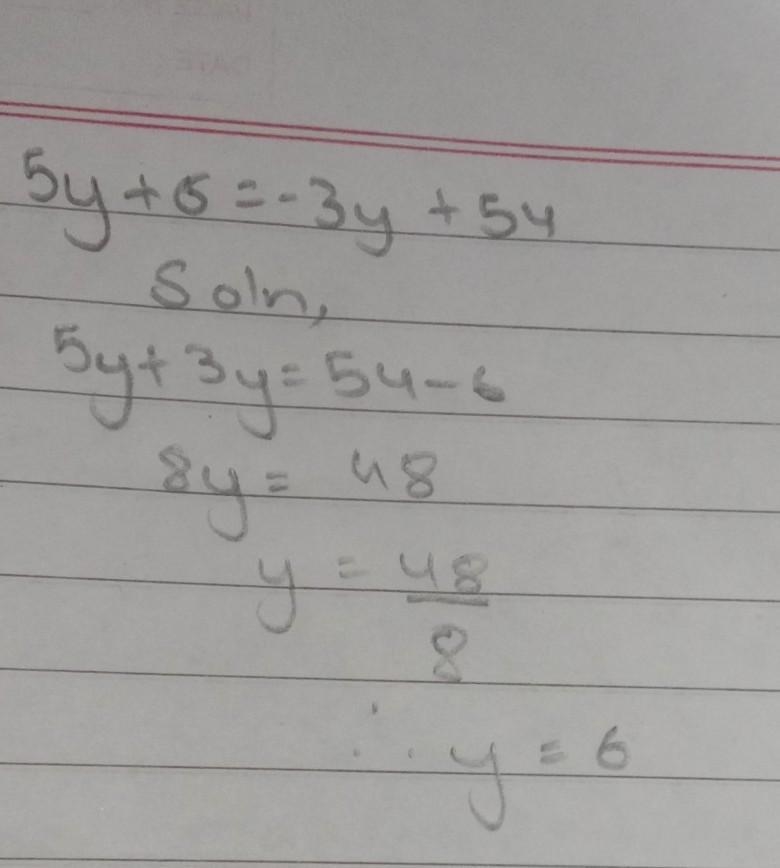 5y + 6 = -3y + 54
Soln,
5y + 3y = 54 - 6
8y = 48
y = 48/8
∴ y = 6